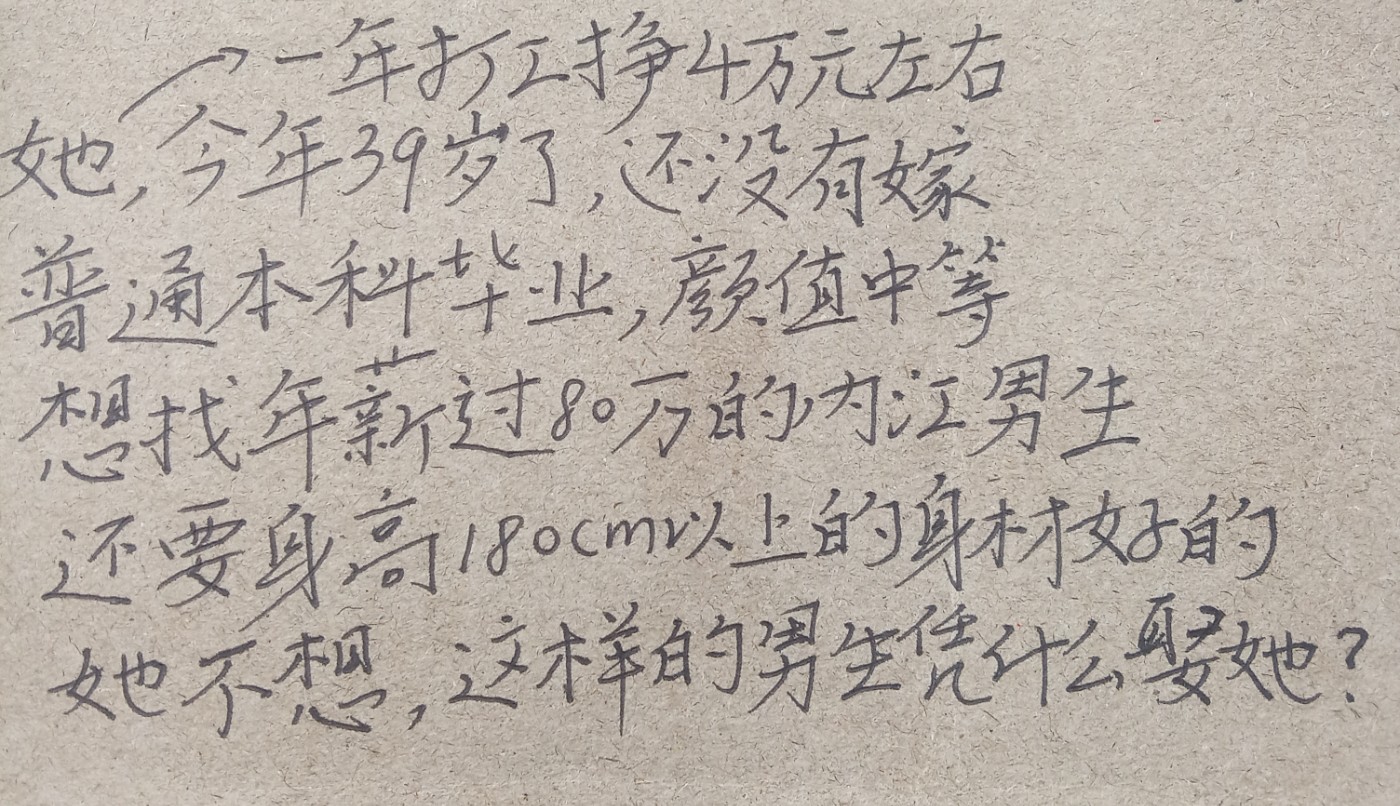 一年打工挣4万元左右
她,今年39岁了,还没有嫁
普通本科毕业,颜值中等
想找年薪过80万的内江男生
还要身高180cm以上的身材好的
她不想,这样的男生凭什么娶她?